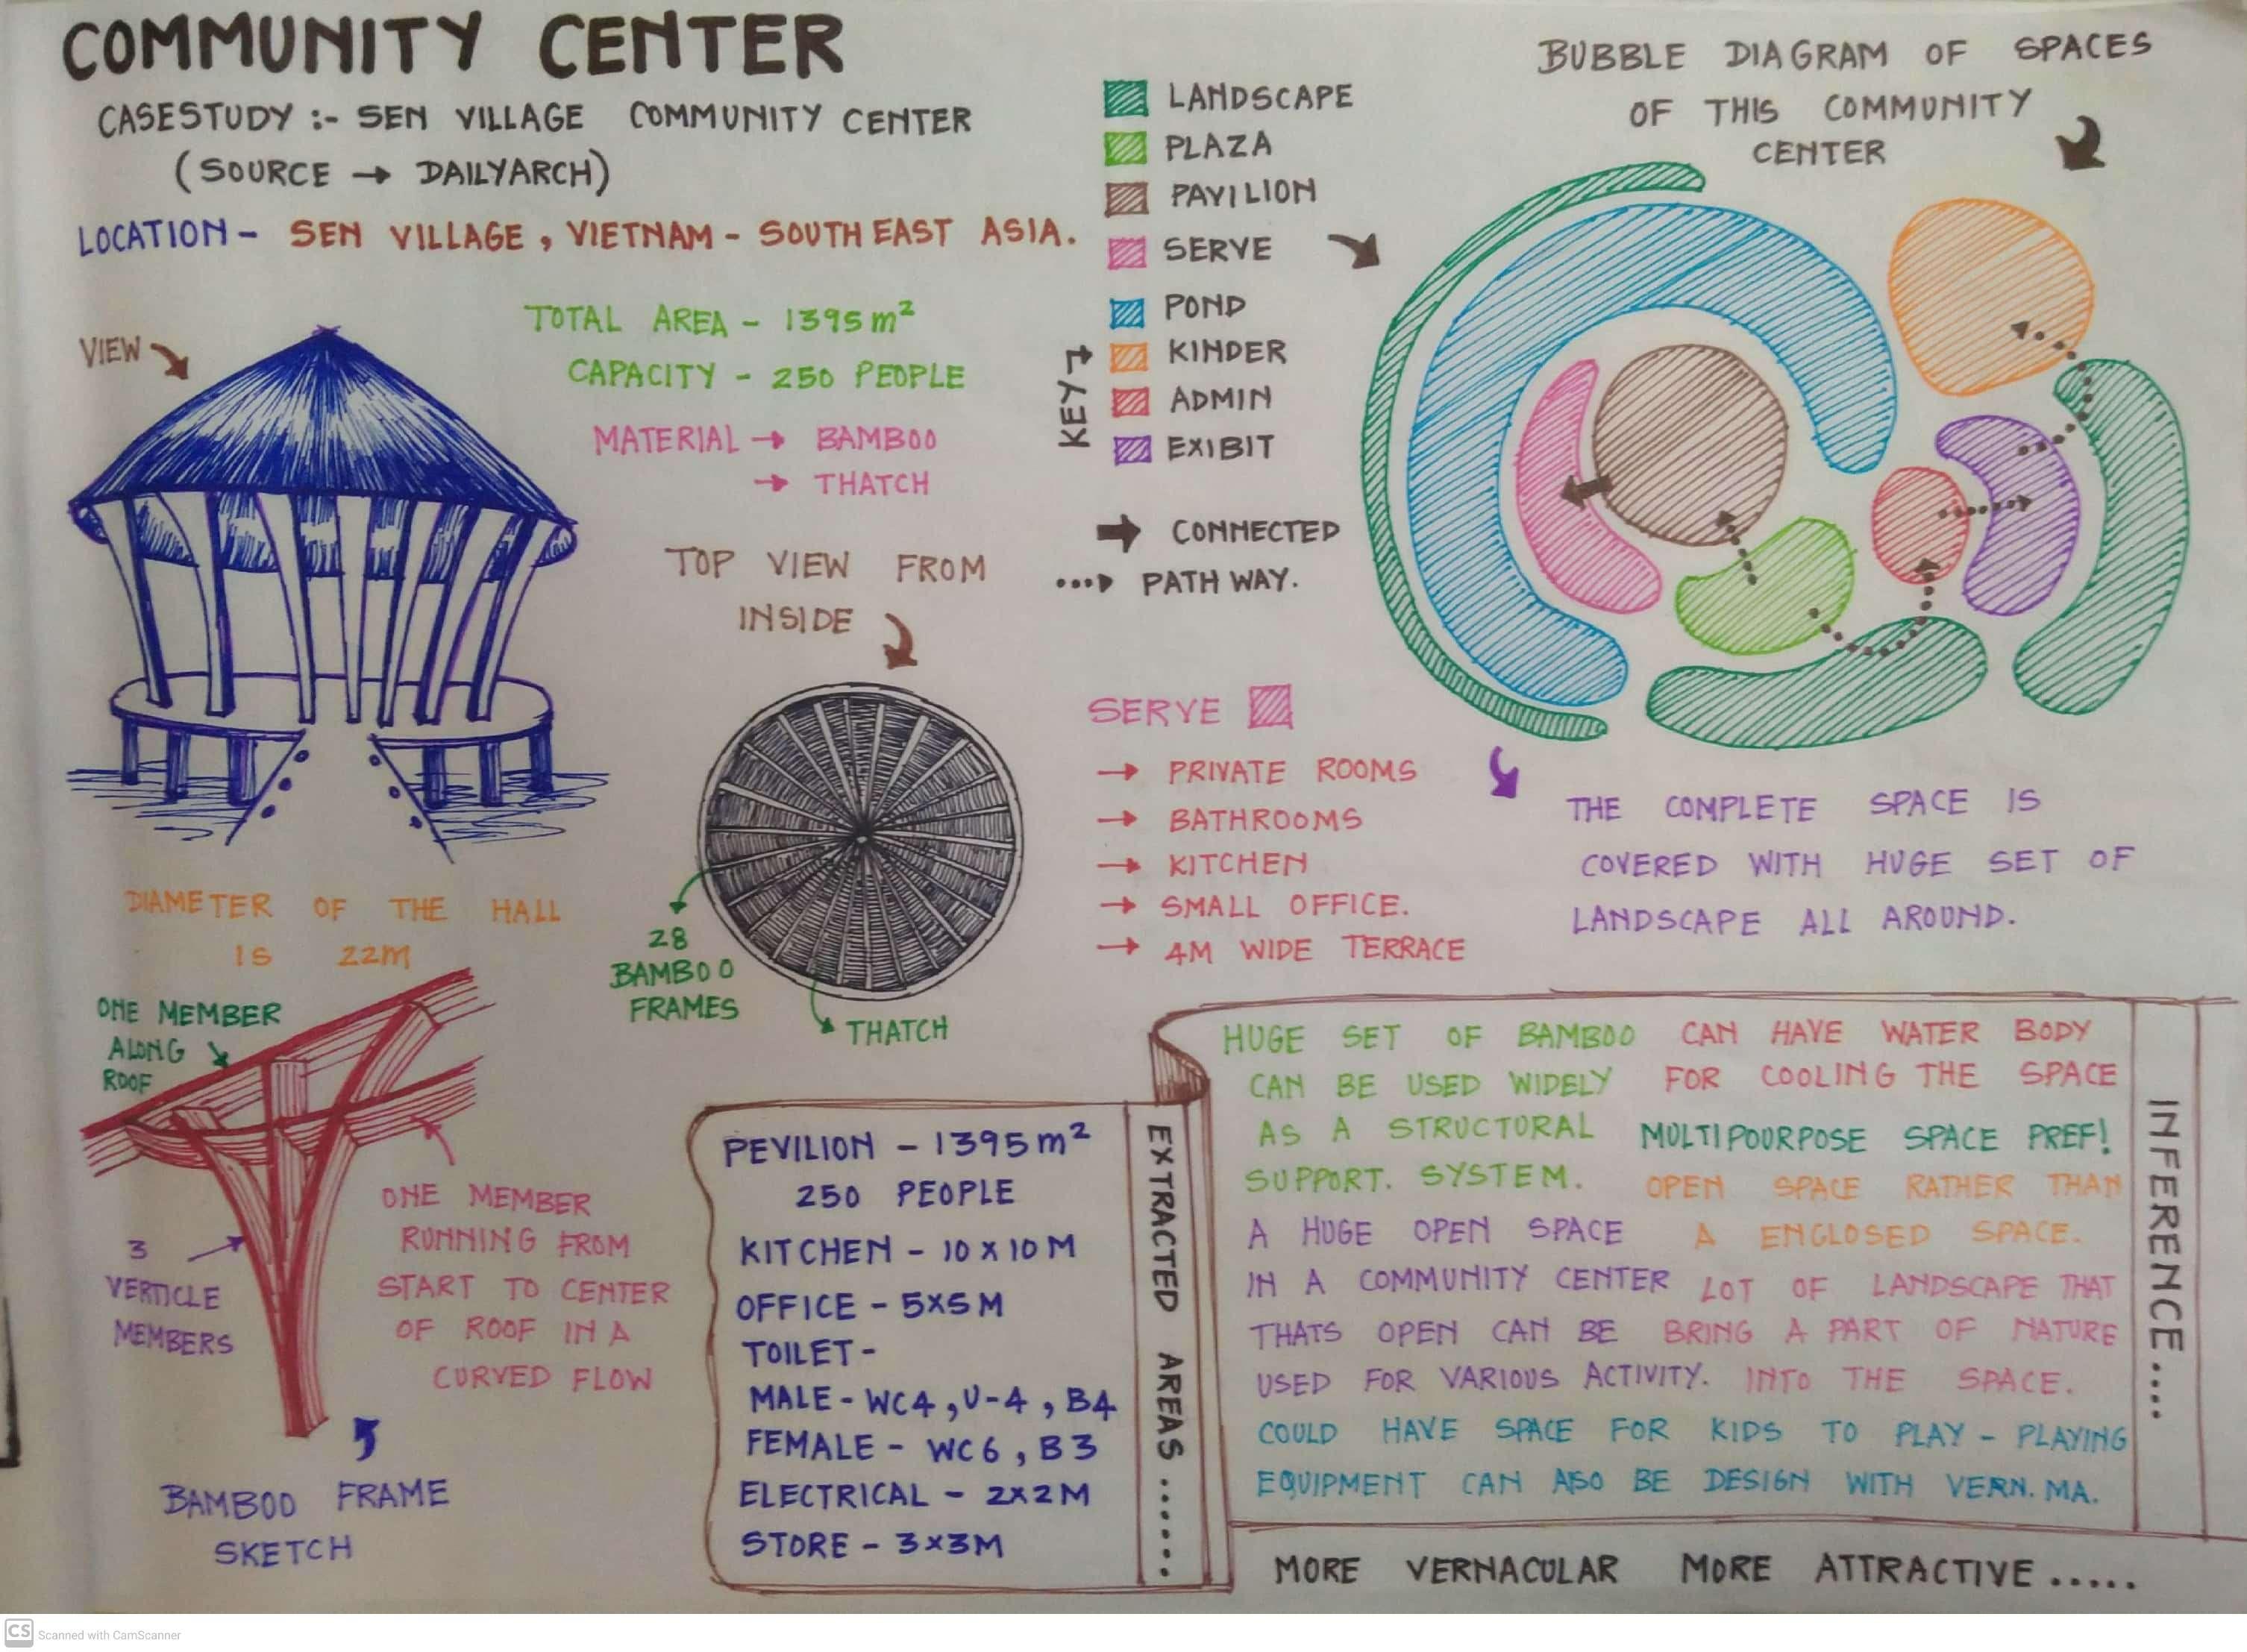 COMMUNITY CENTER
CASESTUDY :- SEN VILLAGE COMMUNITY CENTER
(SOURCE → DAILYARCH)
LOCATION - SEN VILLAGE, VIETNAM - SOUTH EAST ASIA.
VIEW
TOTAL AREA - 1395 m²
CAPACITY - 250 PEOPLE
MATERIAL → BAMBOO
→ THATCH
TOP VIEW FROM
INSIDE
28
BAMBOO
FRAMES
THATCH
DIAMETER OF THE HALL
IS 22M
ONE MEMBER
ALONG
ROOF
3
VERTICLE
MEMBERS
ONE MEMBER
RUNNING FROM
START TO CENTER
OF ROOF IN A
CURVED FLOW
BAMBOO FRAME
SKETCH
KEY
LANDSCAPE
PLAZA
PAVILION
SERVE
POND
KINDER
ADMIN
EXIBIT
CONNECTED
PATH WAY.
BUBBLE DIAGRAM OF SPACES
OF THIS COMMUNITY
CENTER
SERVE
→ PRIVATE ROOMS
→ BATHROOMS
→ KITCHEN
→ SMALL OFFICE.
→ 4M WIDE TERRACE
THE COMPLETE SPACE IS
COVERED WITH HUGE SET OF
LANDSCAPE ALL AROUND.
PEVILION - 1395 m²
250 PEOPLE
KITCHEN - 10 X 10 M
OFFICE - 5X5 M
TOILET -
MALE - WC4, U-4, B4
FEMALE - WC6, B3
ELECTRICAL - 2X2M
STORE - 3X3M
EXTRACTED AREAS.......
HUGE SET OF BAMBOO
CAN BE USED WIDELY
AS A STRUCTURAL
SUPPORT. SYSTEM.
CAN HAVE WATER BODY
FOR COOLING THE SPACE
MULTIPOURPOSE SPACE PREF!
OPEN SPACE RATHER THAN
A ENCLOSED SPACE.
A HUGE OPEN SPACE
IN A COMMUNITY CENTER
THATS OPEN CAN BE
USED FOR VARIOUS ACTIVITY.
LOT OF LANDSCAPE THAT
BRING A PART OF NATURE
INTO THE SPACE.
COULD HAVE SPACE FOR KIDS TO PLAY - PLAYING
EQUIPMENT CAN ALSO BE DESIGN WITH VERN. MA.
INFERENCE....
MORE VERNACULAR MORE ATTRACTIVE.....
CS Scanned with CamScanner